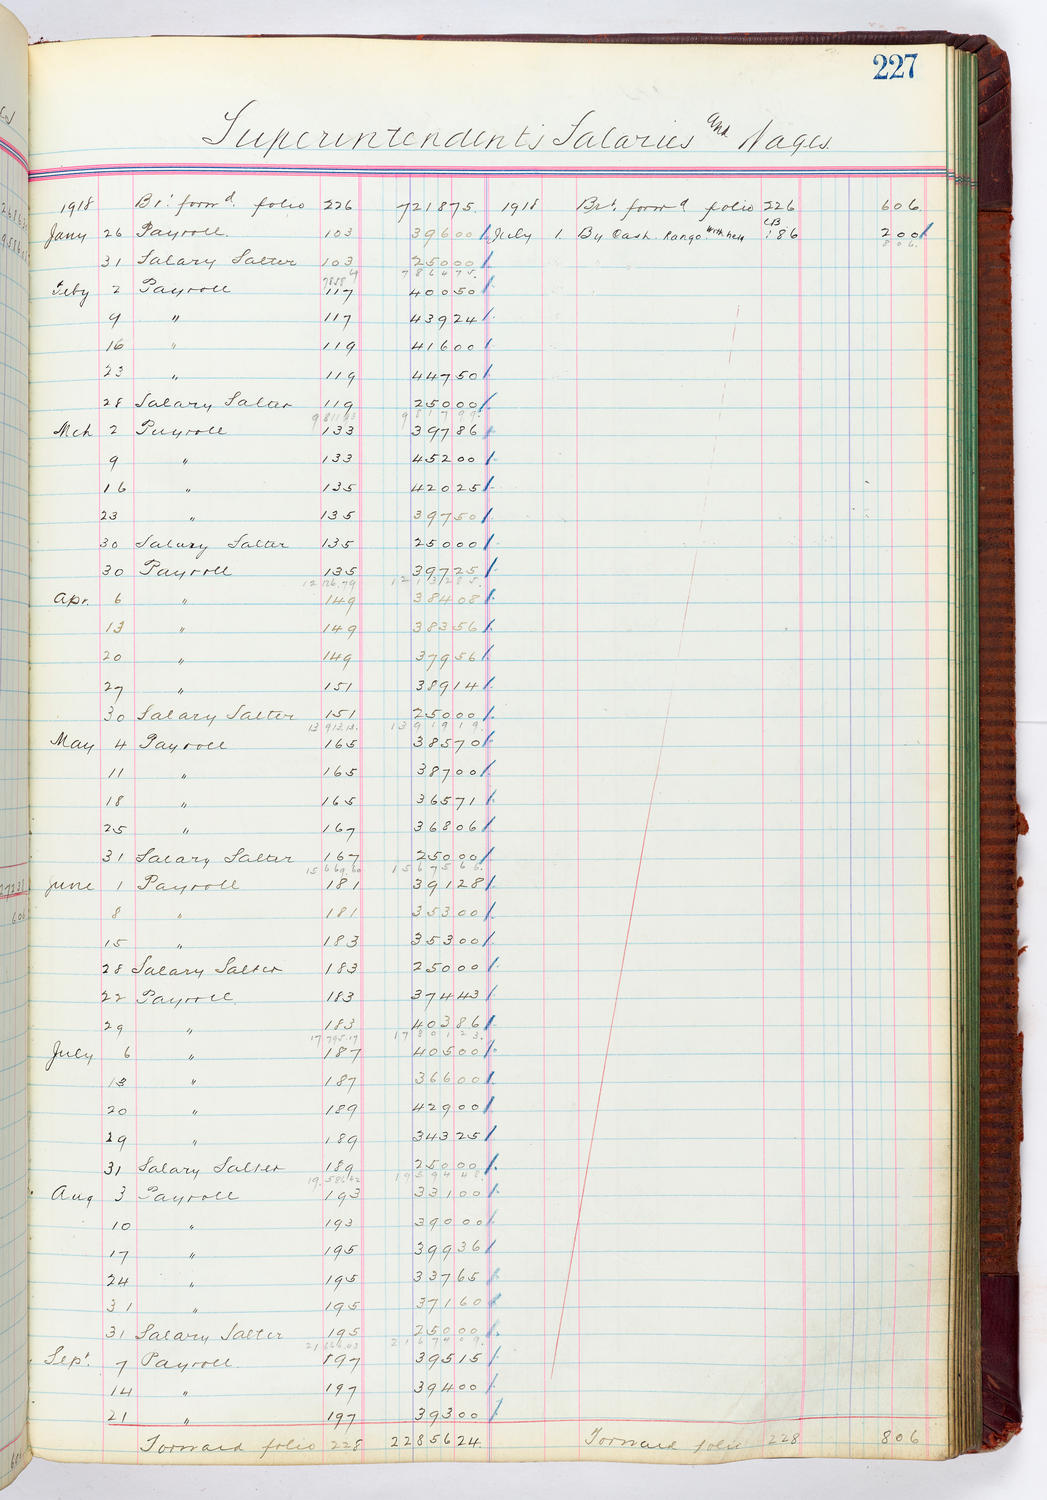 227
Superintendent's Salaries and Wages.
1918 Brt. forwd. folio 226 721875. 1918 Brt. forwd folio 226 606.
Jany 26 Payroll. 103 39600 July 1. By Cash. Rango CB 186 200
806.
31 Salary Salter 103 25000
786475.
Feby 2 Payroll 117 40050
9 " 117 43924
16 " 119 41600
23 " 119 44750
28 Salary Salter 119 25000
981799.
Mch 2 Payroll 133 39786
9 " 133 45200
16 " 135 42025
23 " 135 39750
30 Salary Salter 135 25000
30 Payroll 135 39725
1213285.
Apr. 6 " 149 38408
13 " 149 38356
20 " 149 37956
27 " 151 38914
30 Salary Salter 151 25000
1391919.
May 4 Payroll 165 38570
11 " 165 38700
18 " 165 36571
25 " 167 36806
31 Salary Salter 167 25000
1567566.
June 1 Payroll 181 39128
8 " 181 35300
15 " 183 35300
28 Salary Salter 183 25000
22 Payroll 183 37443
29 " 183 40386
1780123.
July 6 " 187 40500
13 " 187 36600
20 " 189 42900
29 " 189 34325
31 Salary Salter 189 25000
1959448.
Aug 3 Payroll 193 33100
10 " 193 39000
17 " 195 39936
24 " 195 33765
31 " 195 37160
31 Salary Salter 195 25000
2167409.
Sept. 7 Payroll. 197 39515
14 " 197 39400
21 " 197 39300
Forward folio 228 2285624. Forward folio 228 806